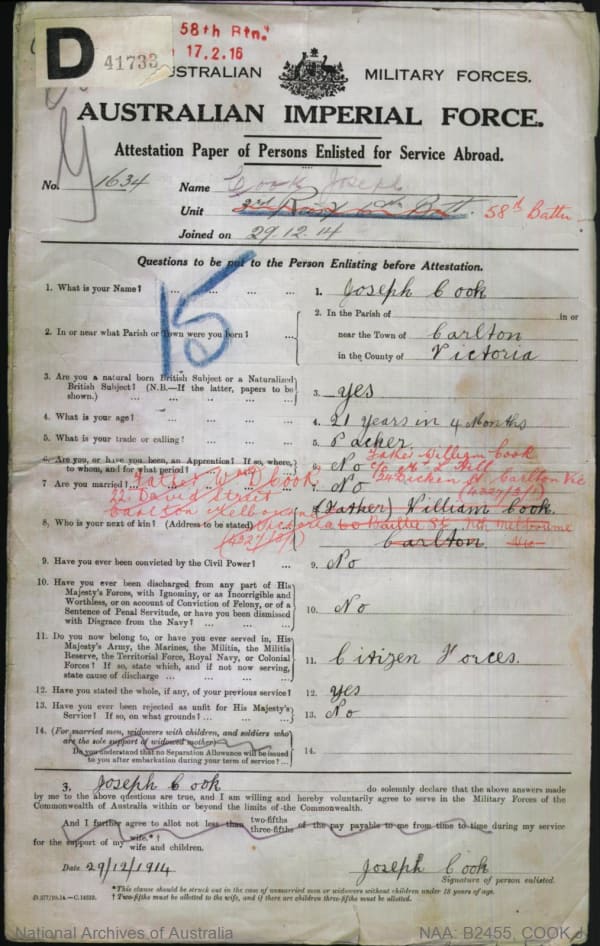 58th Btn.
17.2.16
D
41733
AUSTRALIAN MILITARY FORCES.
AUSTRALIAN IMPERIAL FORCE.
Attestation Paper of Persons Enlisted for Service Abroad.
No. 1634 Name Cook Joseph
Unit 58th Battn
Joined on 29.12.14
Questions to be put to the Person Enlisting before Attestation.
15
1. What is your Name? ... ... ... ... 1. Joseph Cook
2. In or near what Parish or Town were you born? ... 2. In the Parish of in or
near the Town of Carlton
in the County of Victoria
3. Are you a natural born British Subject or a Naturalized
British Subject? (N.B.—If the latter, papers to be
shown.) ... ... ... ... ... 3. yes
4. What is your age? ... ... ... ... 4. 21 years in 4 Months
5. What is your trade or calling? ... ... ... 5.
6. Are you, or have you been, an Apprentice? If so, where,
to whom, and for what period? ... ... 6. No
Father William Cook
Carlton Vic
(4327/3/1)
7. Are you married? 7. No
Father Wm D Cook
22 David Street
Carlton Melbourne
(Father) William Cook
8. Who is your next of kin? (Address to be stated) 8. Carlton
Nth Melbourne
Vic
9. Have you ever been convicted by the Civil Power? ... 9. No
10. Have you ever been discharged from any part of His
Majesty's Forces, with Ignominy, or as Incorrigible and
Worthless, or on account of Conviction of Felony, or of a
Sentence of Penal Servitude, or have you been dismissed
with Disgrace from the Navy? ... ... ... 10. No
11. Do you now belong to, or have you ever served in, His
Majesty's Army, the Marines, the Militia, the Militia
Reserve, the Territorial Force, Royal Navy, or Colonial
Forces? If so, state which, and if not now serving,
state cause of discharge ... ... ... ... 11. Citizen Forces.
12. Have you stated the whole, if any, of your previous service? 12. yes
13. Have you ever been rejected as unfit for His Majesty's
Service? If so, on what grounds? ... ... ... 13. No
14. (For married men, widowers with children, and soldiers who
are the sole support of widowed mother)—
Do you understand that no Separation Allowance will be issued
to you after embarkation during your term of service? ... 14.
I, Joseph Cook do solemnly declare that the above answers made
by me to the above questions are true, and I am willing and hereby voluntarily agree to serve in the Military Forces of the
Commonwealth of Australia within or beyond the limits of the Commonwealth.
And I further agree to allot not less than two-fifths three-fifths of the pay payable to me from time to time during my service
for the support of my wife.*† wife and children.
Date 29/12/1914 Joseph Cook
Signature of person enlisted.
*This clause should be struck out in the case of unmarried men or widowers without children under 18 years of age.
† Two-fifths must be allotted to the wife, and if there are children three-fifths must be allotted.
National Archives of Australia
NAA: B2455, COOK J